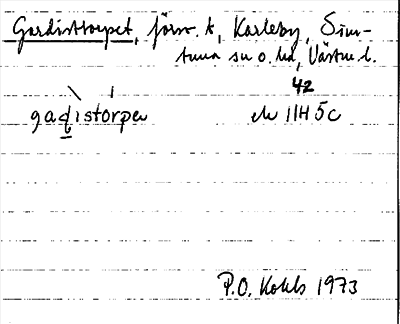 Gardisttorpet, förv. t, Karleby, Sim-
tuna sn o. hd, Västm. l.
42
gadistórpeɩ ek 11H 5c
P.O. Kohls 1973